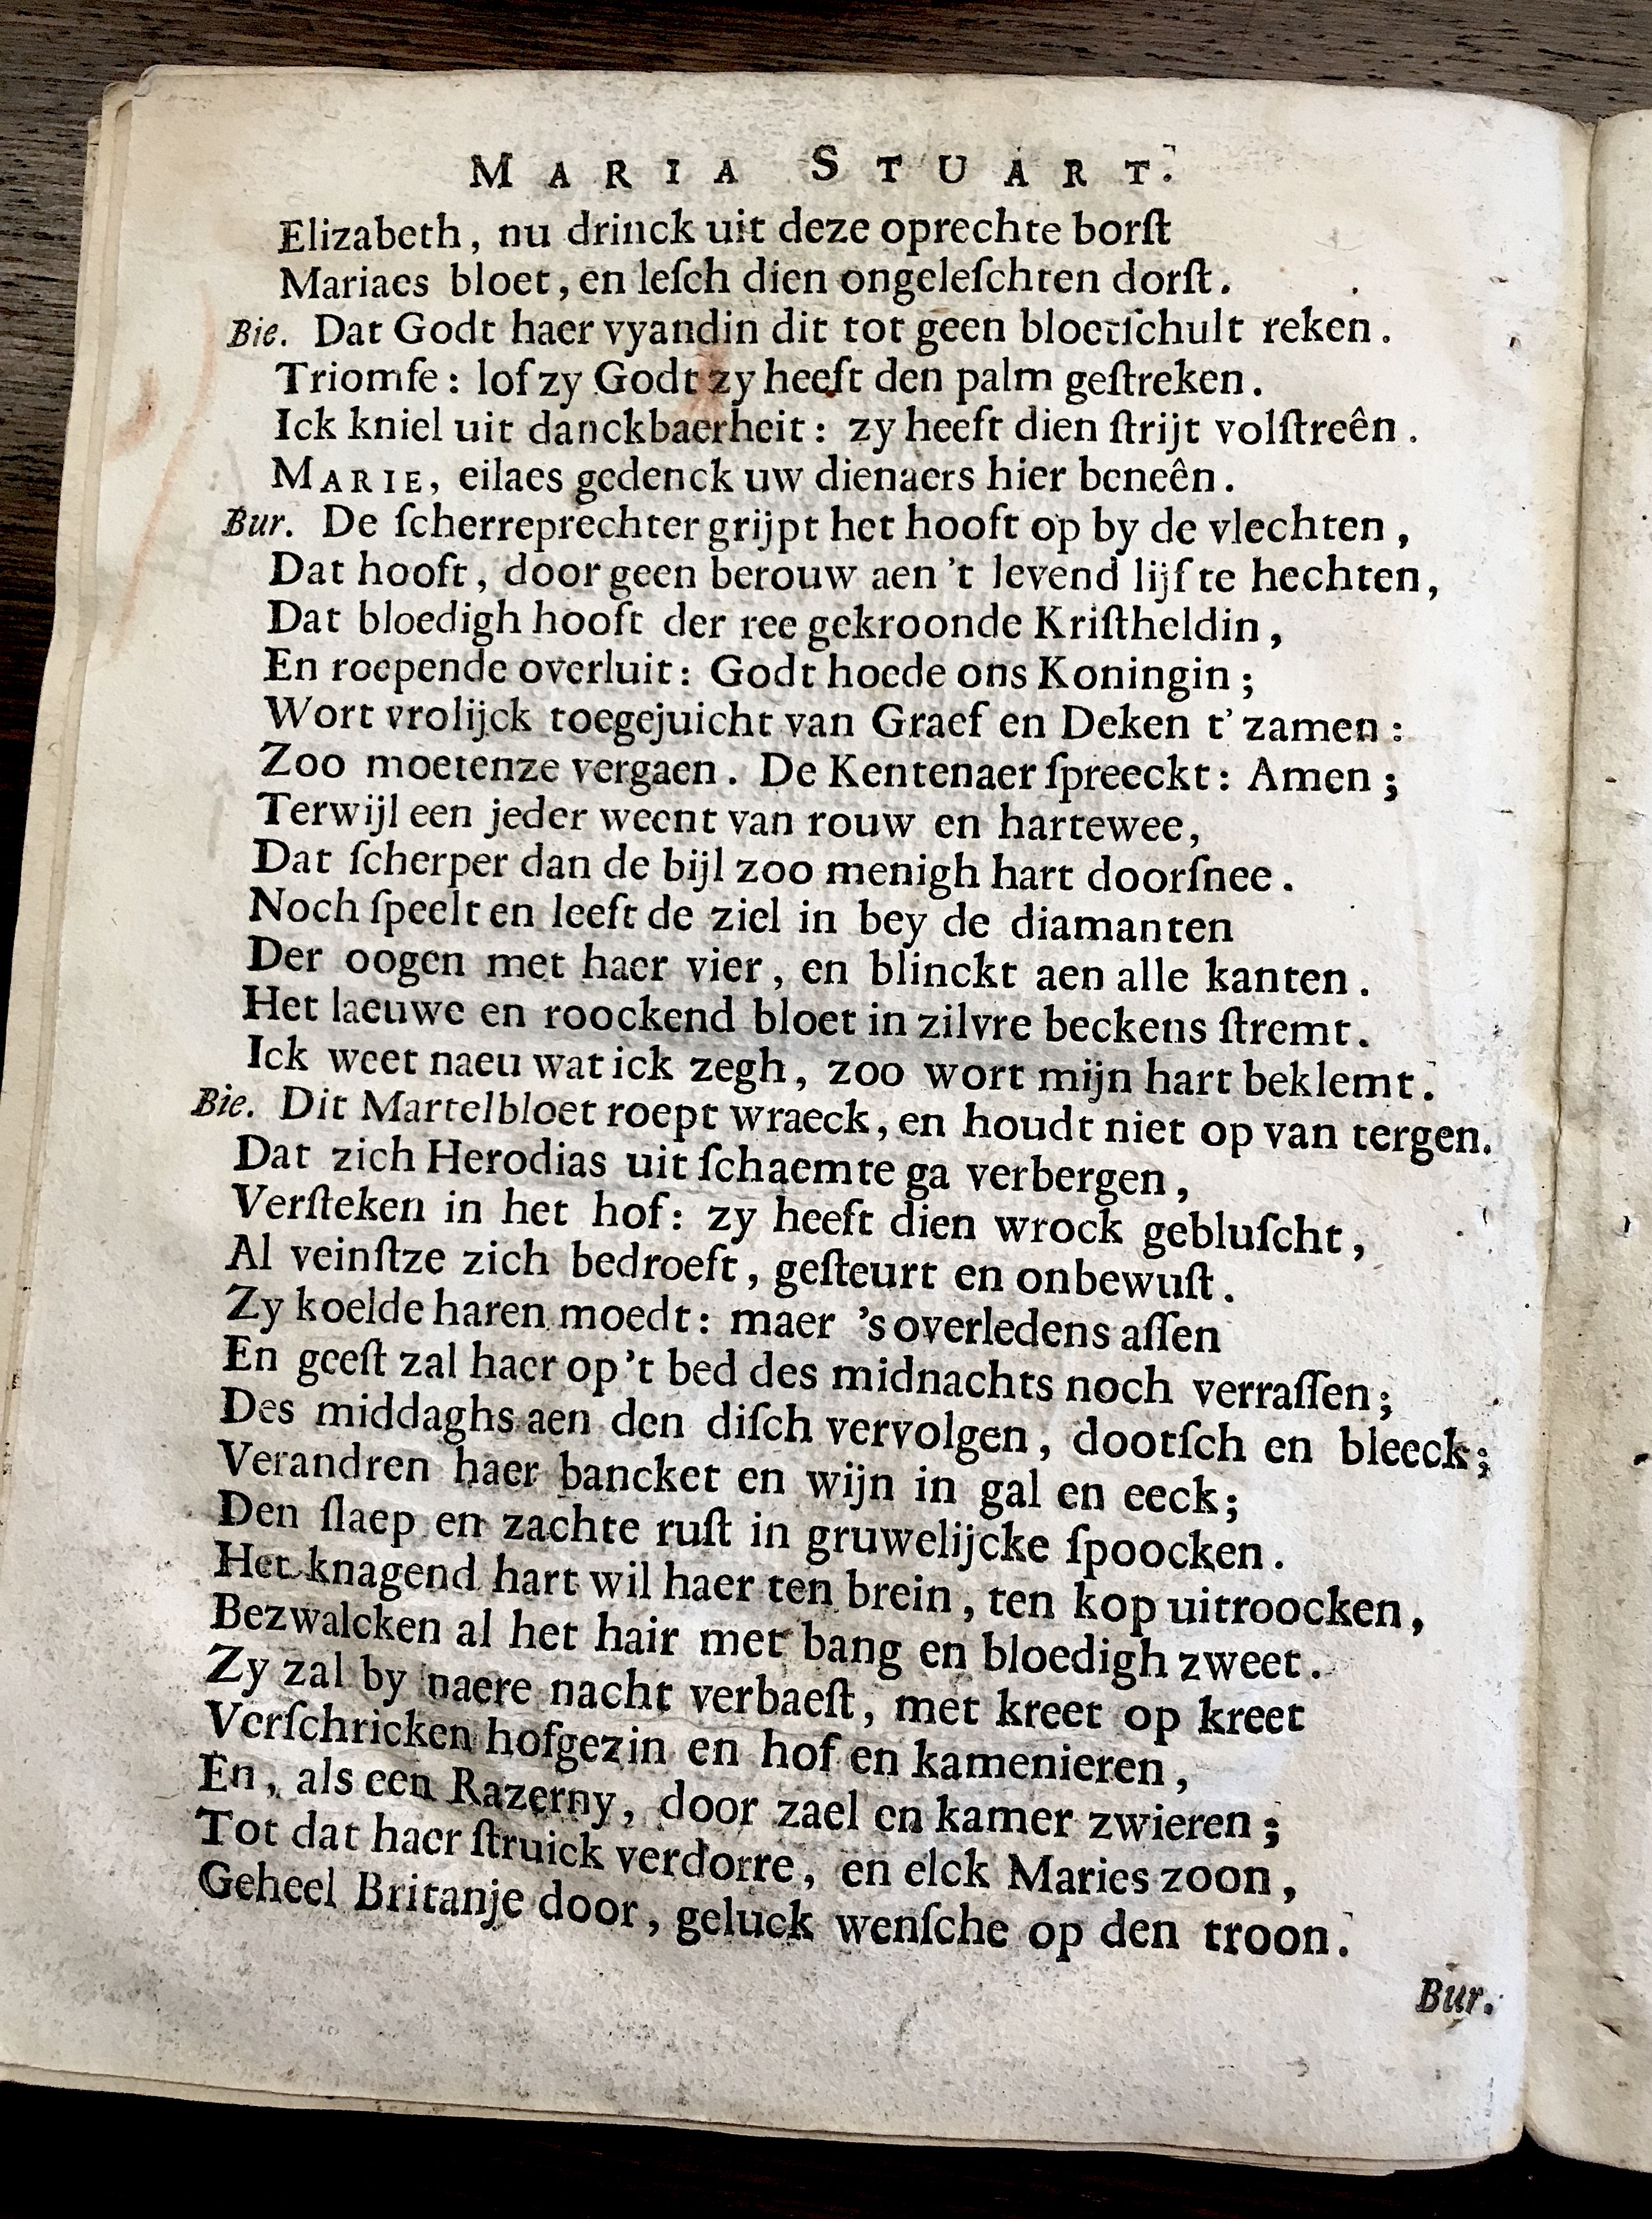 MARIA STUART.
Elizabeth, nu drinck uit deze oprechte borſt
Mariaes bloet, en leſch dien ongeleſchten dorſt.
Bie. Dat Godt haer vyandin dit tot geen bloetſchult reken.
Triomfe: lof zy Godt zy heeft den palm geſtreken.
Ick kniel uit danckbaerheit: zy heeft dien ſtrijt volſtreên.
MARIE, eilaes gedenck uw dienaers hier beneên.
Bur. De ſcherreprechter grijpt het hooft op by de vlechten,
Dat hooft, door geen berouw aen 't levend lijf te hechten,
Dat bloedigh hooft der ree gekroonde Kriſtheldin,
En roepende overluit: Godt hoede ons Koningin;
Wort vrolijck toegejuicht van Graef en Deken t'zamen:
Zoo moetenze vergaen. De Kentenaer ſpreeckt: Amen;
Terwijl een jeder weent van rouw en hartewee,
Dat ſcherper dan de bijl zoo menigh hart doorſnee.
Noch ſpeelt en leeft de ziel in bey de diamanten
Der oogen met haer vier, en blinckt aen alle kanten.
Het laeuwe en roockend bloet in zilvre beckens ſtremt.
Ick weet naeu wat ick zegh, zoo wort mijn hart beklemt.
Bie. Dit Martelbloet roept wraeck, en houdt niet op van tergen.
Dat zich Herodias uit ſchaemte ga verbergen,
Verſteken in het hof: zy heeft dien wrock gebluſcht,
Al veinſtze zich bedroeft, geſteurt en onbewuſt.
Zy koelde haren moedt: maer 's overledens aſſen
En geeſt zal haer op 't bed des midnachts noch verraſſen;
Des middaghs aen den diſch vervolgen, dootſch en bleeck;
Verandren haer bancket en wijn in gal en eeck;
Den ſlaep en zachte ruſt in gruwelijcke ſpoocken.
Het knagend hart wil haer ten brein, ten kop uitroocken,
Bezwalcken al het hair met bang en bloedigh zweet.
Zy zal by naere nacht verbaeſt, met kreet op kreet
Verſchricken hofgezin en hof en kamenieren,
En, als een Razerny, door zael en kamer zwieren;
Tot dat haer ſtruick verdorre, en elck Maries zoon,
Geheel Britanje door, geluck wenſche op den troon.
Bur.